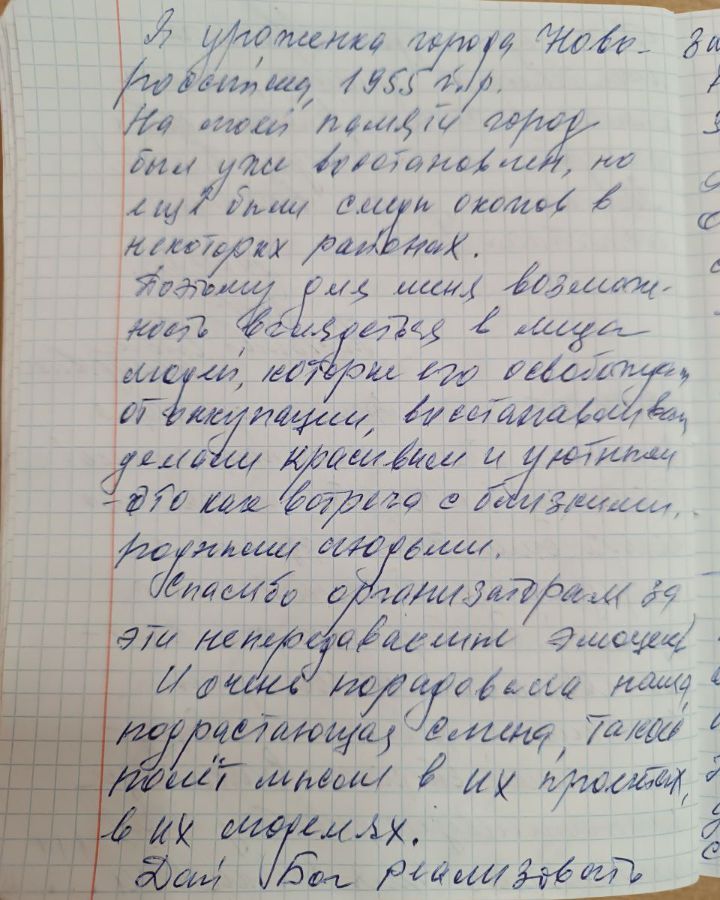 Я уроженка города Ново-
российска, 1955 г.р.
На моей памяти город
был уже восстановлен, но
ещё были следы окопов в
некоторых районах.
Поэтому для меня возмож-
ность вглядеться в лица
людей, которые его освобождали
от оккупации, восстанавливали,
делали красивым и уютным
- это как встреча с близкими,
родными людьми.
Спасибо организаторам за
эти непередаваемые эмоции!
И очень порадовала наша
подрастающая смена, такой
полёт мысли в их проектах,
в их моделях.
Дай Бог реализовать